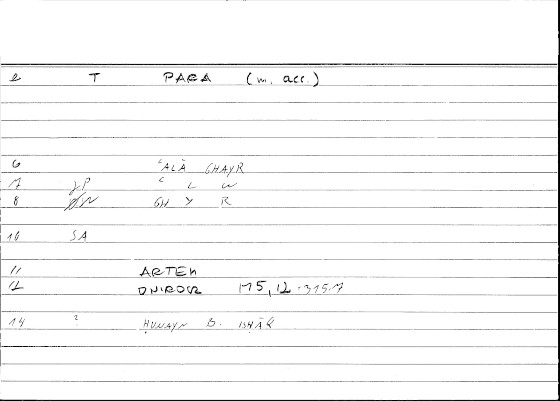 e T PARA (m. acc.)
6 ʿALĀ GHAYR
7 JP ʿ L W
8 GH Y R
10 SA
11 ARTEM
12 ONIROCR 175,12-315.7
14 ? ḤUNAYN B. ISḤĀḲ